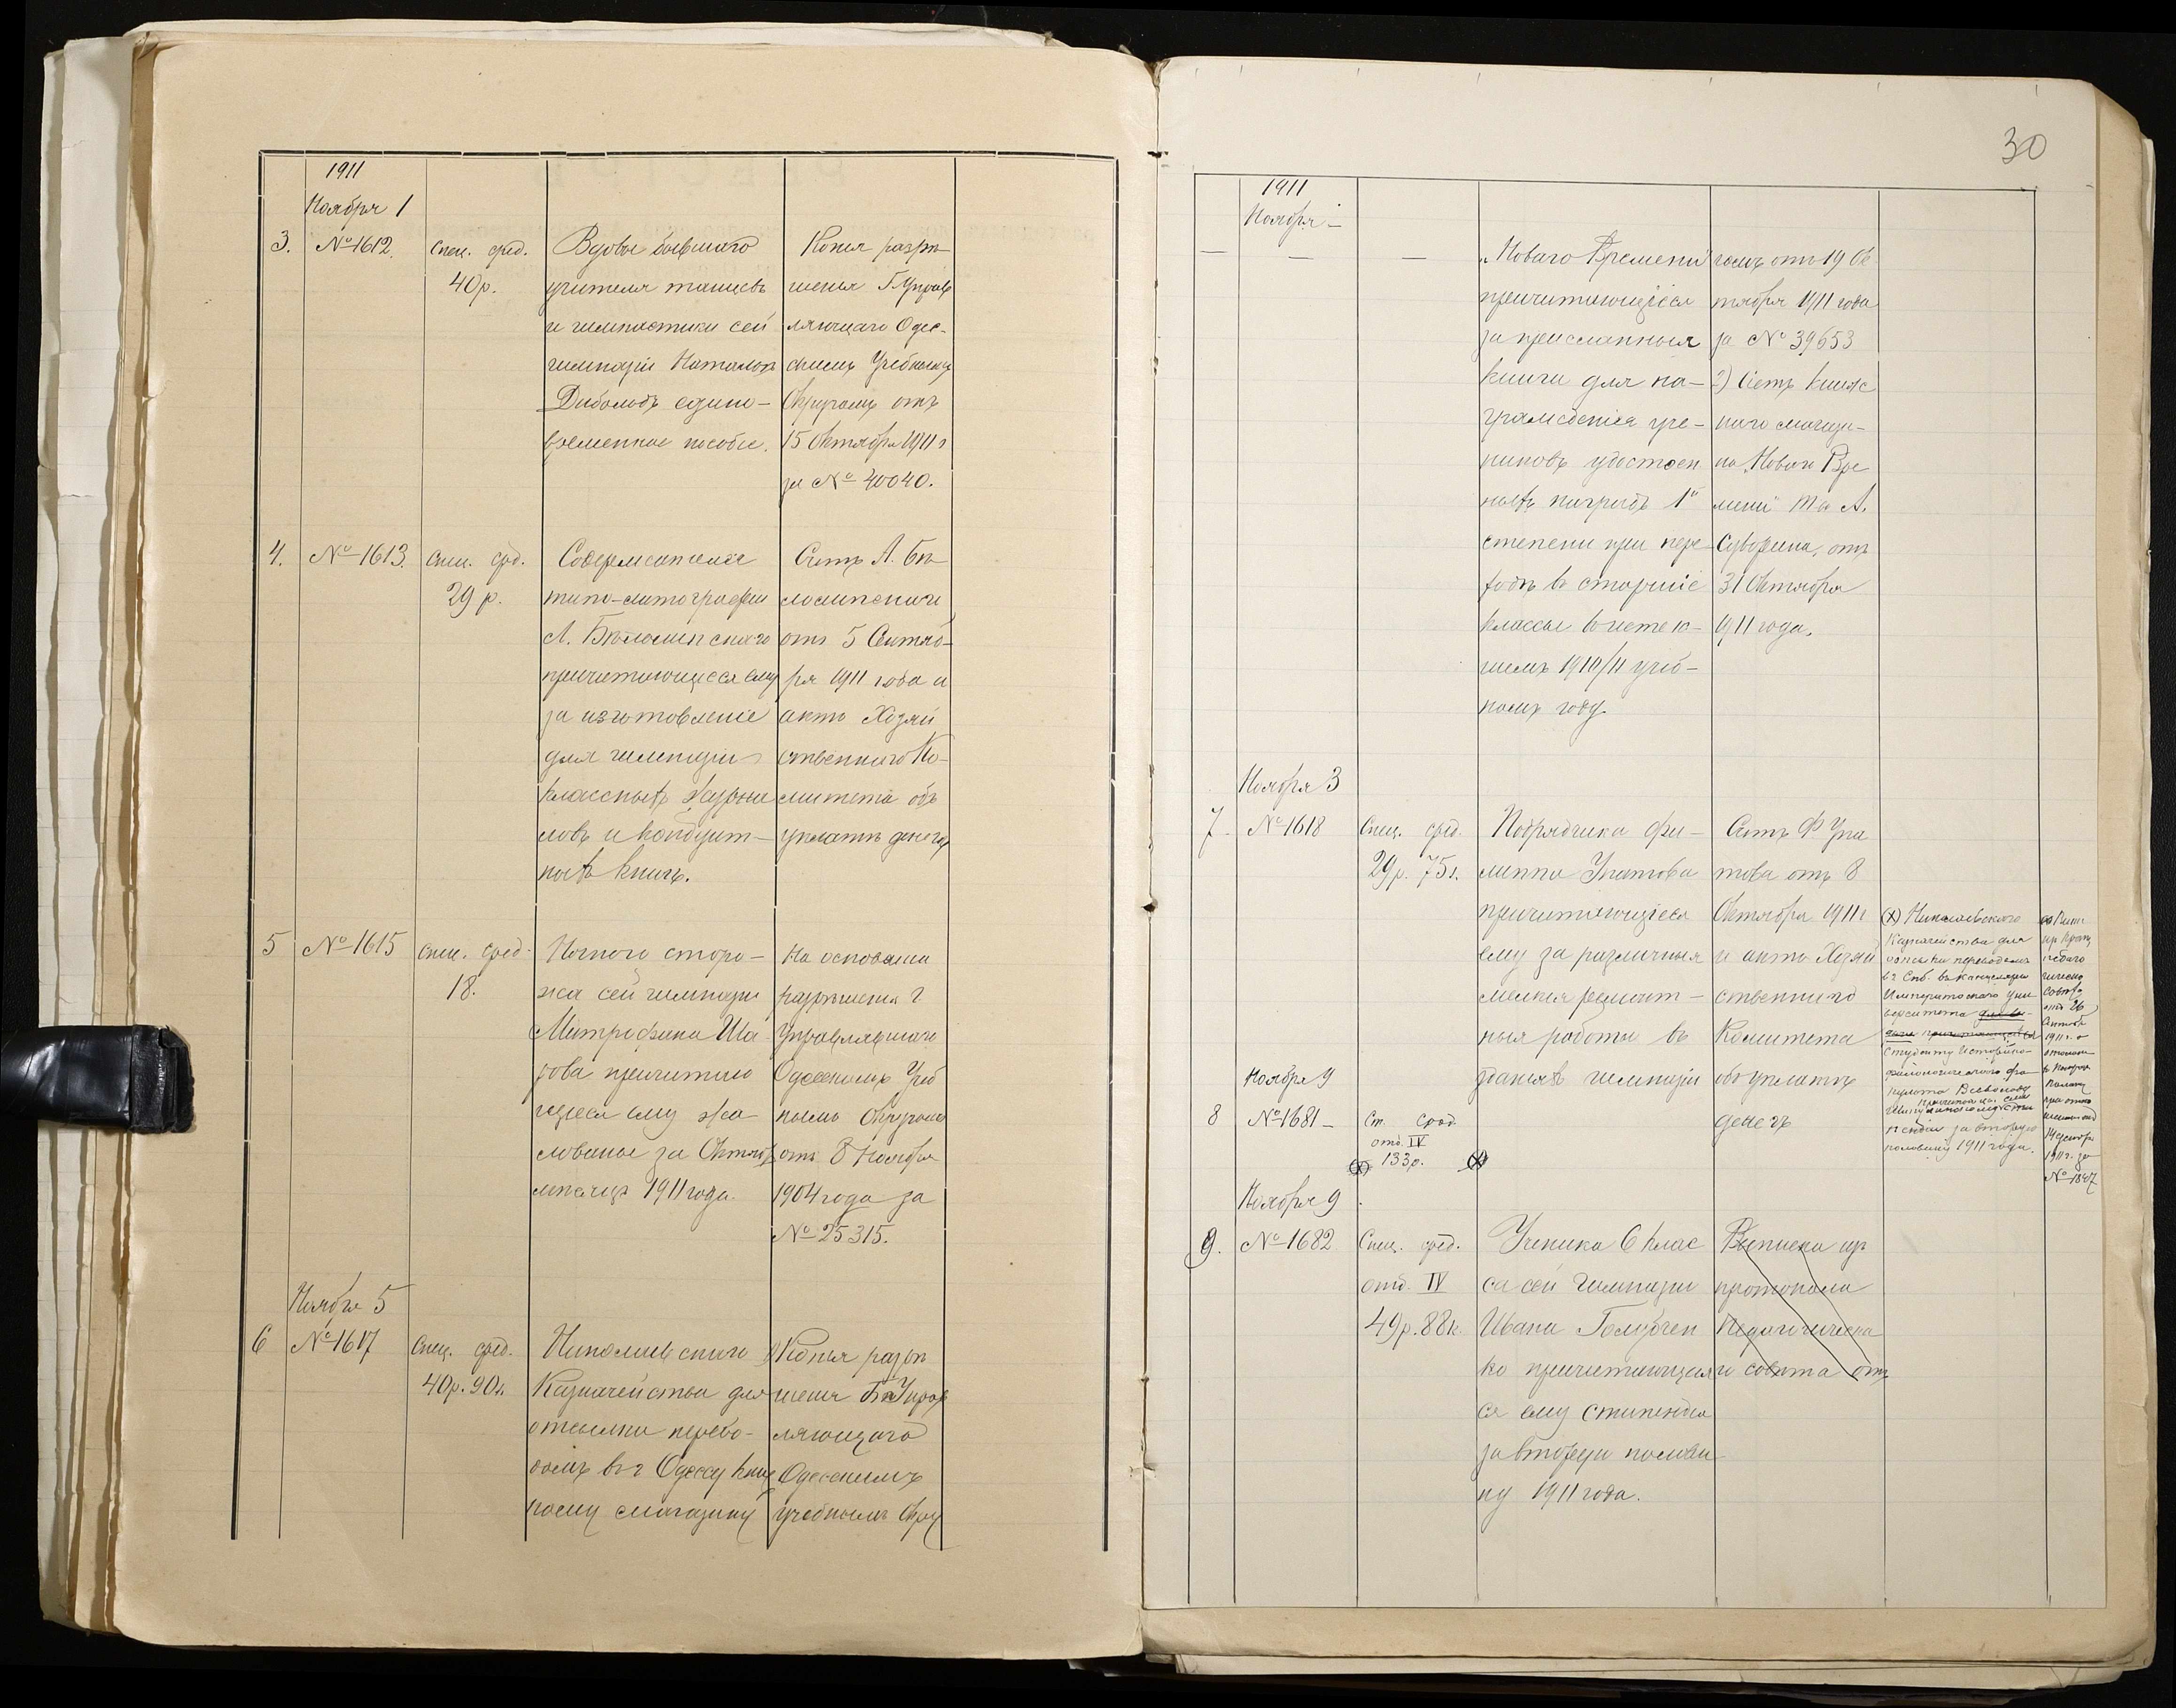 1911
Ноября 1
3. №1612. Спец. сред. 40р.
Вдовы бывшаго
учителя танцевъ
и гимнастики сей
гимназіи Наталіи
Дибольдъ едино-
временное пособіе.
Копія разрѣ-
шенія Г. Управ
ляющаго Одес-
скимъ Учебнымъ
Округомъ отъ
15 Октября 1911 г
за № 40040.
4. №1613. Спец. сред. 29 р.
Содержателя
типо-литографіи
Л. Бѣлолипскаго
причитающіеся ему
за изготовленіе
для гимназіи
классныхъ журна
ловъ и кондуит-
ныхъ книгъ.
Счетъ Л. Бѣ-
лолипскаго
отъ 5 Сентяб-
ря 1911 года и
актъ Хозяй
ственнаго Ко-
митета объ
уплатѣ денегъ
5 №1615 Спец. сред. 18.
Ночного сторо-
жа сей гимназіи
Митрофана Ша-
рова причитаю
щееся ему жа-
лованье за Октябрь
мѣсяцъ 1911 года.
На основаніи
разрѣшенія Г.
Управлявшаго
Одесскимъ Учеб
нымъ Округомъ
отъ 8 Ноября
1904 года за
№ 25315.
Ноября 5
6 №1617 Спец. сред. 40р. 90к.
Николаевскаго
Казначейства для
отсылки перево-
домъ въ г. Одессу книж
ному магазину
1) Копія разрѣ
шенія Г. Управ
ляющаго
Одесскимъ
учебнымъ Окру
30
1911
Ноября -
— — —
„Новаго Времени"
причитающіеся
за присланныя
книги для на-
гражденія уче-
никовъ удостоен
ныхъ наградъ 1й
степени при пере-
ходѣ въ старшіе
классы въ истек-
шемъ 1910/11 учеб-
номъ году.
гомъ отъ 19 Ок
тября 1911 года
за № 39653
2) Счетъ книж
наго магази-
на „Новаго Вре
мени" Т-ва А.
Суворина, отъ
31 Октября
1911 года.
Ноября 3
7. №1618 Спец. сред. 29р. 75к.
Подрядчика Фи-
липпа Ипатова
причитающіеся
ему за различныя
мелкія ремонт-
ныя работы въ
зданіяхъ гимназіи
Счетъ Ф. Ипа
това отъ 8
Октября 1911 г
и актъ Хозяй
ственнаго
Комитета
объ уплатѣ
денегъ
Ноября 9
8 №1681 - Ст. сред. отд. IV 133р.
(х) Николаевскаго
Казначейства для
отсылки переводомъ
въ Спб. въ Канцелярію
Императорскаго Уни
верситета
причитающейся
студенту Историко-
филологическаго фа-
культета Всеволоду
стипендіи за вторую
половину 1911 года.
педаго
гическаго
совѣта
отъ 26
1911 г.
1911 г. за
№ 1847
Ноября 9
9. №1682 Спец. сред. отд. IV 49р. 88к.
Ученика 6 клас
са сей Гимназіи
Ивана Голубчен
ко причитающая
ся ему стипендія
за вторую полови-
ну 1911 года.
Выписка изъ
протокола
Педагогическа
го совѣта отъ